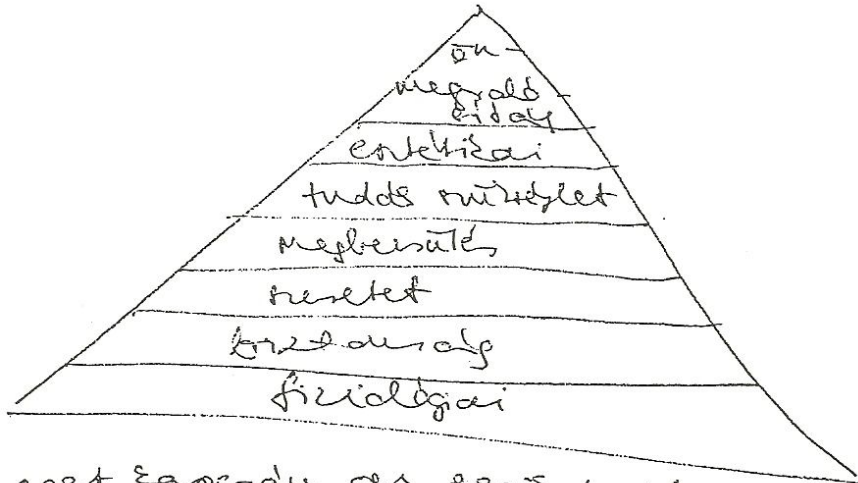 ön-
megvaló-
sítás
esztétikai
tudás szükséglet
megbecsülés
szeretet
biztonság
fiziológiai